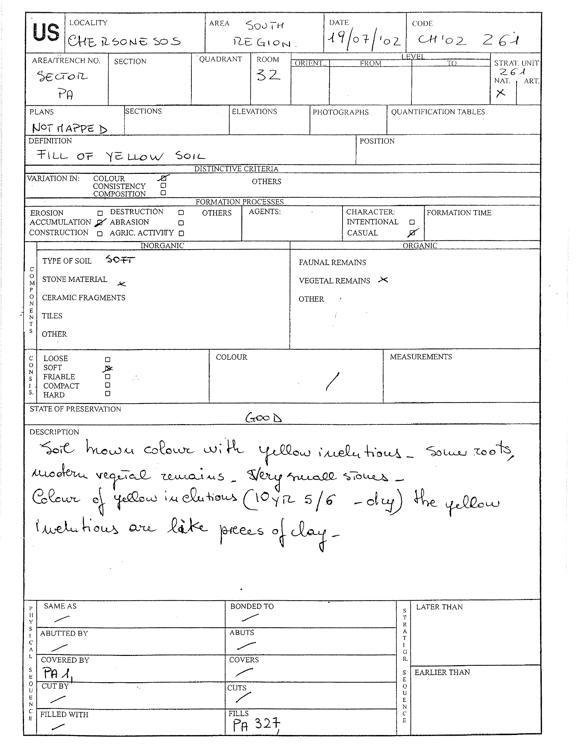 US
LOCALITY
CHERSONESOS
AREA SOUTH
REGION.
DATE
19/07/'02
CODE
CH'02 261
AREA/TRENCH NO.
SECTOR
PA
SECTION
QUADRANT
ROOM
32
LEVEL
ORIENT. FROM TO
STRAT. UNIT
261
NAT. ART.
x
PLANS
NOT MAPPED
SECTIONS
ELEVATIONS
PHOTOGRAPHS
QUANTIFICATION TABLES
DEFINITION
FILL OF YELLOW SOIL
POSITION
DISTINCTIVE CRITERIA
VARIATION IN: COLOUR
CONSISTENCY
COMPOSITION
OTHERS
FORMATION PROCESSES
EROSION DESTRUCTION OTHERS
ACCUMULATION ABRASION
CONSTRUCTION AGRIC. ACTIVITY
AGENTS:
CHARACTER:
INTENTIONAL
CASUAL
FORMATION TIME
COMPONENTS
INORGANIC
TYPE OF SOIL SOFT
STONE MATERIAL x
CERAMIC FRAGMENTS
TILES
OTHER
ORGANIC
FAUNAL REMAINS
VEGETAL REMAINS x
OTHER
CONSIS.
LOOSE
SOFT
FRIABLE
COMPACT
HARD
COLOUR
/
MEASUREMENTS
STATE OF PRESERVATION
GOOD
DESCRIPTION
Soil brown colour with yellow inclutions - Some roots,
modern vegetal remains - Very small stones -
Colour of yellow inclutions (10 YR 5/6 - dry) the yellow
inclutions are like pieces of clay -
PHYSICAL SEQUENCE
SAME AS
/
BONDED TO
/
ABUTTED BY
/
ABUTS
/
COVERED BY
PA 1,
COVERS
/
CUT BY
/
CUTS
/
FILLED WITH
/
FILLS
PA 327,
STRATIGR. SEQUENCE
LATER THAN
EARLIER THAN